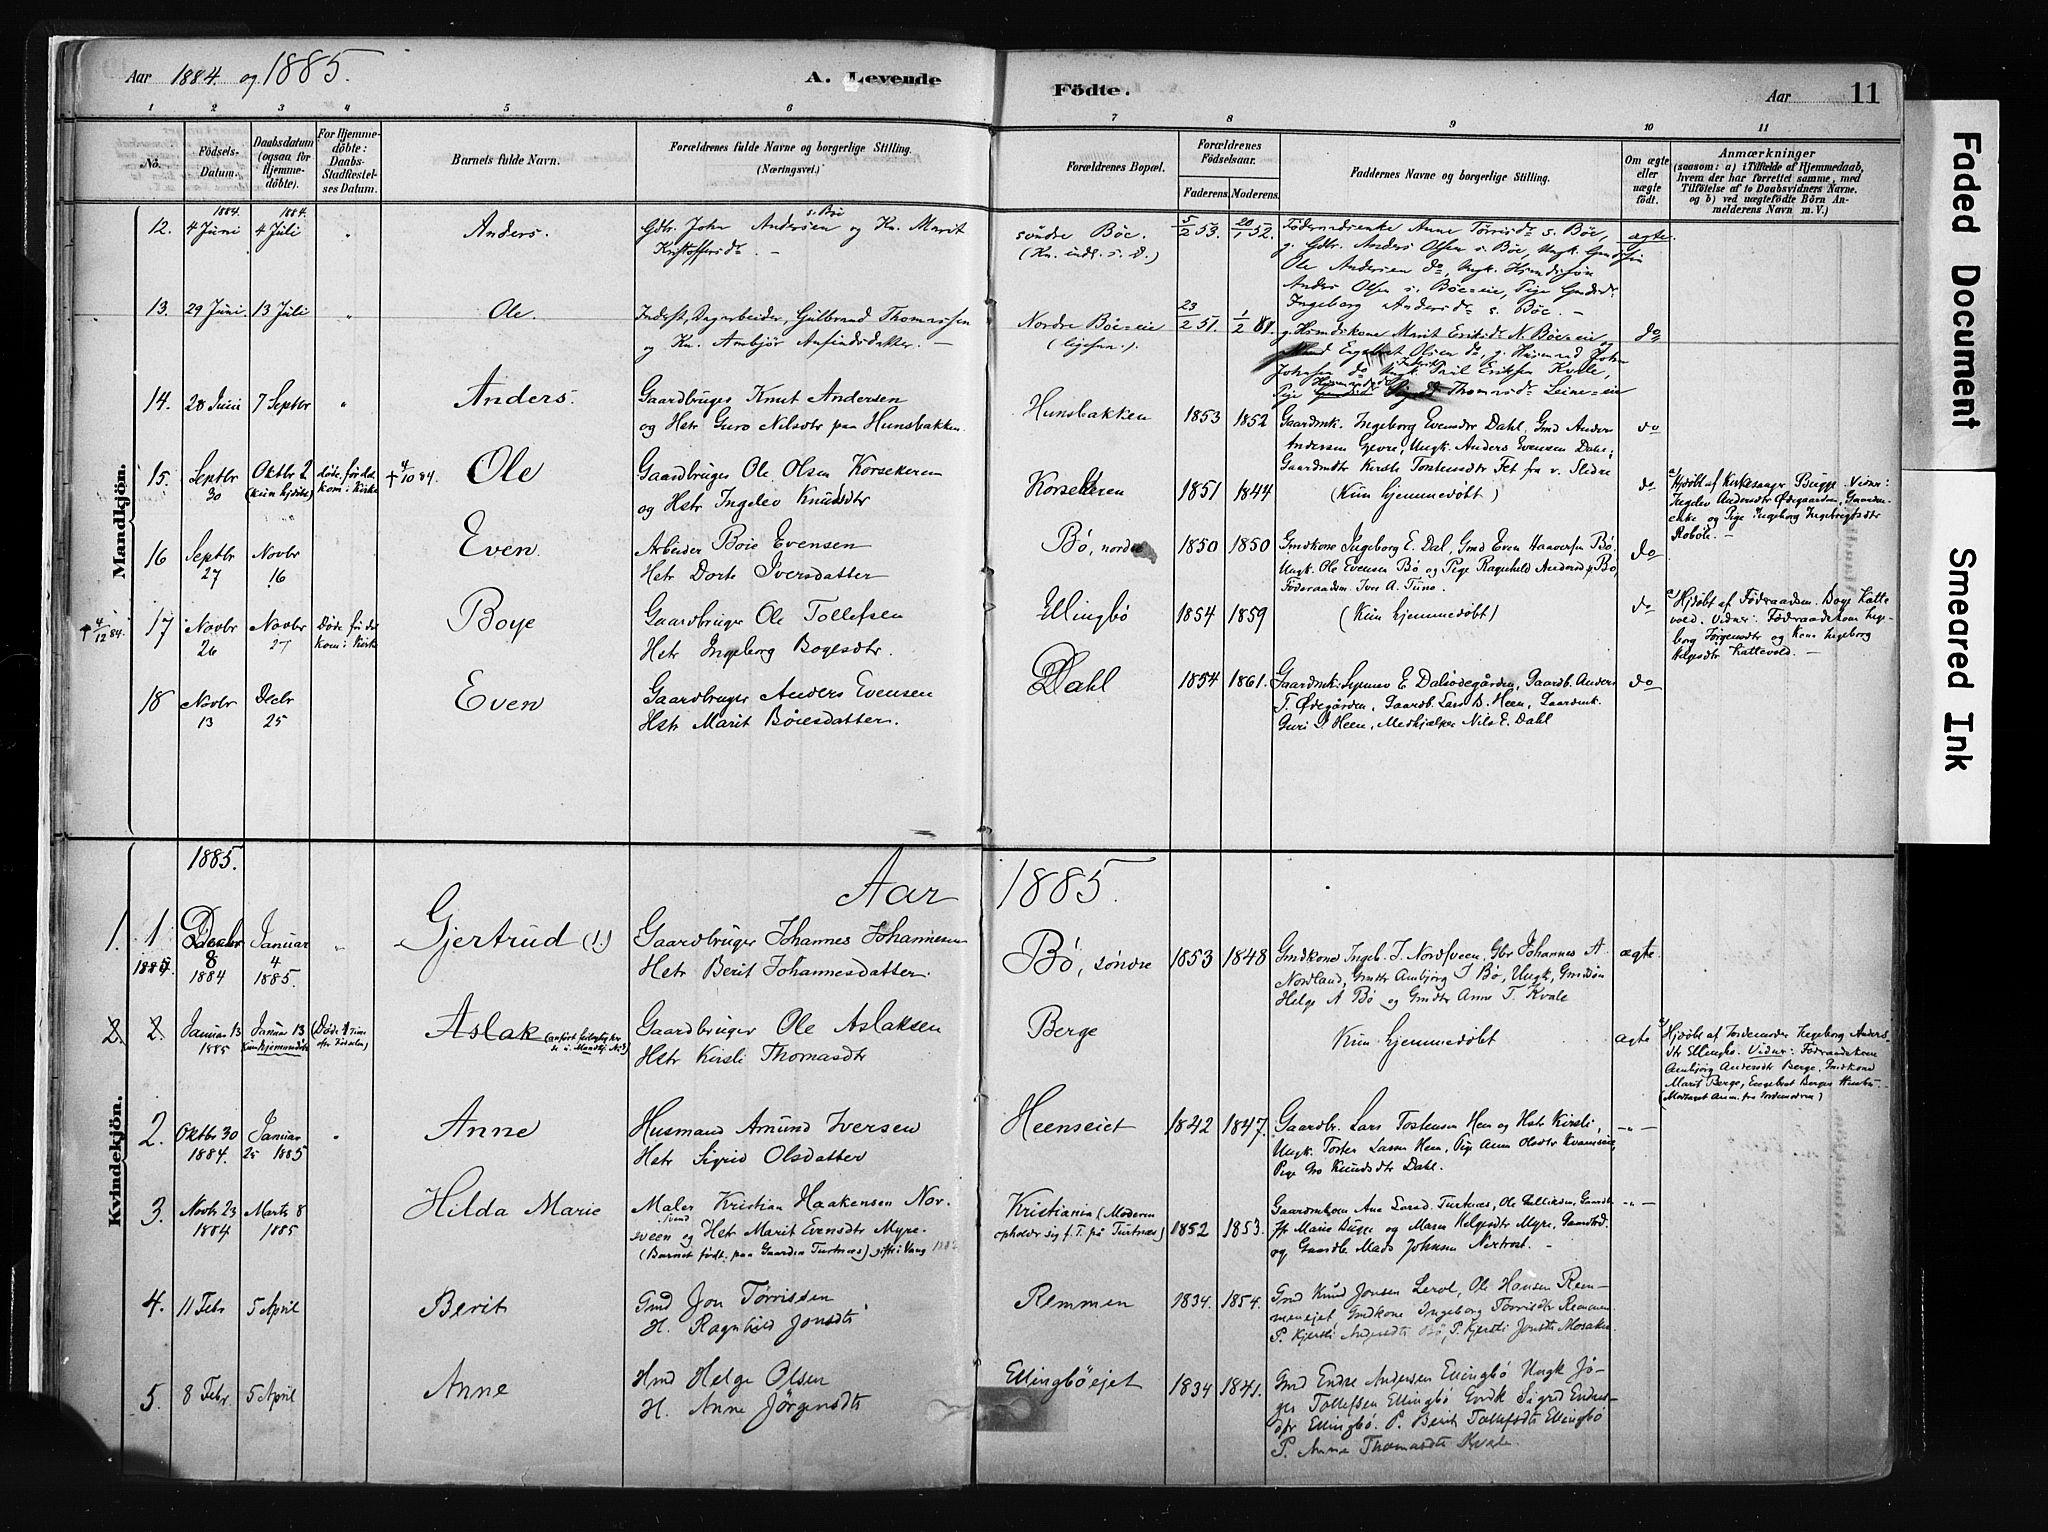 Aar 1884. og 1885.
A. Levende
Födte.
Aar
11
1 2 3 4 5 6 7 8 9 10 11
No.
Födsels-
Datum.
Daabsdatum
(ogsaa for
Hjemme-
döbte).
For Hjemme-
döbte:
Daabs-
Stadfæstel-
ses Datum.
Barnets fulde Navn.
Forældrenes fulde Navne og borgerlige Stilling.
(Næringsvei.)
Forældrenes Bopæl.
Forældrenes
Födselsaar.
Faderens. Moderens.
Faddernes Navne og borgerlige Stilling.
Om ægte
eller
uægte
födt.
Anmærkninger
(saasom: a) i Tilfælde af Hjemmedaab,
hvem der har forrettet samme, med
Tilföielse af to Daabsvidners Navne.
og b) ved uægtefödte Börn An-
melderens Navn m. V.)
Mandkjön.
12. 1884. 4 Juni 1884. 4 Juli " Anders. Gdbr. John Andersen s. Bö og Kn. Marit
Kristoffersdr. —
söndre Böe.
(Kn. indl. s. D.)
5/2 53. 20/1 52.
Föderaadsenke Anne Torrisdr s. Böe,
g. Gdbr. Anders Olsen s. Böe, Ungk.
Ole Andersen do, Ungk.
Anders Olsen s. Böe=eie, Pige
Ingeborg Andersdr s. Böe. —
ægte
13. 29 Juni 13 Juli " Ole. Inderst, Dagarbeider, Gulbrand Thomassen
og Kn. Ambjör Anfindsdatter. —
Nordre Böe=eie
(ligesaa.)
23/2 51. 1/2
g. Hsmdskone Marit Eriksdr N. Böe=eie og
Olsen do, g. Husmand John
Johnsen do, Ungk. Eriksen Kvale,
Pige Thomasdr Leine=eie
do
14. 28 Juni 7 Septbr " Anders. Gaardbruger Knut Andersen
og Hstr Guro Nilsdtr paa Hunsbakken.
Hunsbakken 1853 1852
Gaardmk. Ingeborg Evensdtr Dahl, Gmd Anders
Andersen Gjevre, Ungk. Anders Evensen Dahl,
Gaardmdtr Kirsti Tostensdtr Fet fra v. Slidre
do
15. Septbr
30
Oktbr 2
(kun hjdöbt)
döde för det
kom i Kirke
† 4/10 84. Ole Gaardbruger Ole Olsen Korsekeren
og Hstr Ingelev Knudsdtr
Korsekeren 1851 1844 (Kun hjemmedöbt) do
a) Hjdöbt af Kirkesanger Bugge. Vidner:
Ingelev Andersdtr Ödegaarden, Gaarden-
enke og Pige Ingeborg Ingebrigtsdtr
Roböle. —
16 Septbr
27
Novbr
16
Even. Arbeider Boie Evensen
Hstr Dorte Iversdatter
Bö, nordre 1850 1850
Gmdkone Ingeborg E. Dal, Gmd Even Haaversen Bö.
Ungk. Ole Evensen Bö og Pige Ragnhild Andersd p Bö,
Föderaadsm. Iver A. Tune.
do
† 4/12 84. 17 Novbr
26
Novbr
27
Döde för det
kom i Kirke
Boye Gaardbruger Ole Tollefsen
Hstr Ingeborg Bogesdtr.
Ellingbö 1854 1859 (Kun hjemmedöbt) do
a) Hjdöbt af Föderaadsm. Boye Katte
vold. Vidner: Föderaadskone Inge-
borg Jörgensdtr og Kone Ingeborg
Helgesdtr Kattevold. —
18 Novbr
13
Decbr
25
Even Gaardbruger Anders Evensen
Hstr Marit Böiesdatter.
Dahl 1854 1861.
Gaardmk. E Dalsödegården, Gaardb. Anders
T. Ödegården, Gaardb. Lars B. Heen, Gaardmk.
Guri O Heen, Medhjælper Nils E. Dahl
do
1885.
Aar 1885.
Kvindekjön.
1. 1
1884.
Decbr
8
1884
Januar
4
1885.
" Gjertrud (1.) Gaardbruger Johannes Johannesen
Hstr Berit Johannesdatter.
Bö, söndre 1853 1848
Gmdkone Ingeb. I. Nordsveen, Gbr Johannes A
Nordland, Gmdtr Ambjörg I Bö, Ungk, Gmdsön
Helge A Bö og Gmdtr Anne T. Kvale
ægte
2. 2. Januar 13
1885
Januar 13
Kun hjemmedöbt
(Döde 1 Time
efter Födselen)
Aslak (anfört
Mandkj. No 3)
Gaardbruger Ole Aslaksen
Hstr Kirsti Thomasdtr
Berge Kun hjemmedöbt ægte
a) Hjdöbt af Jordemoder Ingeborg Anders-
dtr Ellingbö. Vidner: Föderaadskone
Ambjörg Andersdtr Berge, Gmdkone
Marit Berge, Engebret Berge.
(Modtaget Anm. fra Jordemoderen)
2. Oktbr 30
1884.
Januar
25 1885
" Anne Husmand Amund Iversen
Hstr Sigrid Olsdatter
Heenseiet 1842 1847.
Gaardbr. Lars Tostensen Hen og Hstr Kirsti,
Ungk. Tosten Larsen Hen, Pige Anne Olsdtr
Pige Gro Knudsdtr Dahl.
— " —
3. Novbr 23
1884
Marts 8
1885
Hilda Marie Maler Kristian Haakensen Nor-
sveen og Hstr Marit Evensdtr Myre.
(Barnet födt paa Gaarden Turtnæs) gifte i Vang
Kristiania (Moderen
opholder sig f. T. på Turtnæs) 1852 1853.
Gaardmkone Ane Larsd. Turtnæs, Ole
Jfr Marie Bugge og Maren Helgesdtr Myre,
og Gaardb. Mads Johnsen Nextrost. —
— " —
4. 11 Febr 5 April Berit Gmd Jon Törrissen
H. Ragnhild Jonsdtr
Remmen 1834. 1854.
Gmd Knud Jonsen Lerol, Ole Hansen Rem-
menejet, Gmdkone Ingeborg Törrisdtr Remmen
P. Kjersti Andersdtr Bö, P. Kjersti Jonsdtr Mosaker
5. 8 Febr 5 April Anne Hmd Helge Olsen
H. Anne Jörgensdtr
Ellingböejet 1834 1841.
Gmd Endre Andersen Ellingbö Ungk Jö-
ger Tollefsen Ellingbö Gmdk Sigrid Endres-
dtr Ellingbö. P. Berit Tollefsdtr Ellingbö
P. Anne Thomasdtr Kvale.
Faded Document
Smeared Ink